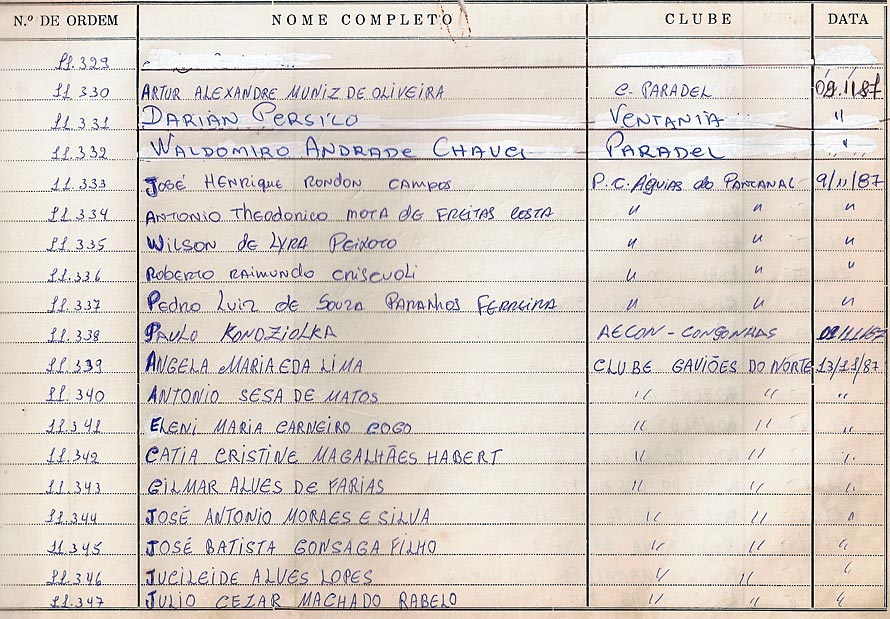 N.º DE ORDEM NOME COMPLETO CLUBE DATA
11.329
11.330 ARTUR ALEXANDRE MUNIZ DE OLIVEIRA C. PARADEL 09.11.87
11.331 DARIAN PERSICO VENTANIA "
11.332 WALDOMIRO ANDRADE PARADEL "
11.333 JOSÉ HENRIQUE RONDON CAMPOS P.C. Águias do PANTANAL 9/11/87
11.334 ANTONIO THEODORICO MOTA DE FREITAS COSTA " " "
11.335 WILSON de LYRA PEIXOTO " " "
11.336 ROBERTO RAIMUNDO CRISCUOLI " " "
11.337 PEDRO LUIZ de SOUZA PARANHOS FERREIRA " " "
11.338 PAULO KONDZIOLKA AECON - CONGONHAS
11.339 ANGELA MARIA EDA LIMA CLUBE GAVIÕES DO NORTE 13/11/87
11.340 ANTONIO SESA DE MATOS " " "
11.341 ELENI MARIA CARNEIRO COGO " " "
11.342 CATIA CRISTINE MAGALHÃES HABERT " " "
11.343 GILMAR ALVES DE FARIAS " " "
11.344 JOSÉ ANTONIO MORAES E SILVA " " "
11.345 JOSÉ BATISTA GONSAGA FILHO " " "
11.346 JUCILEIDE ALVES LOPES " " "
11.347 JULIO CEZAR MACHADO RABELO " " "